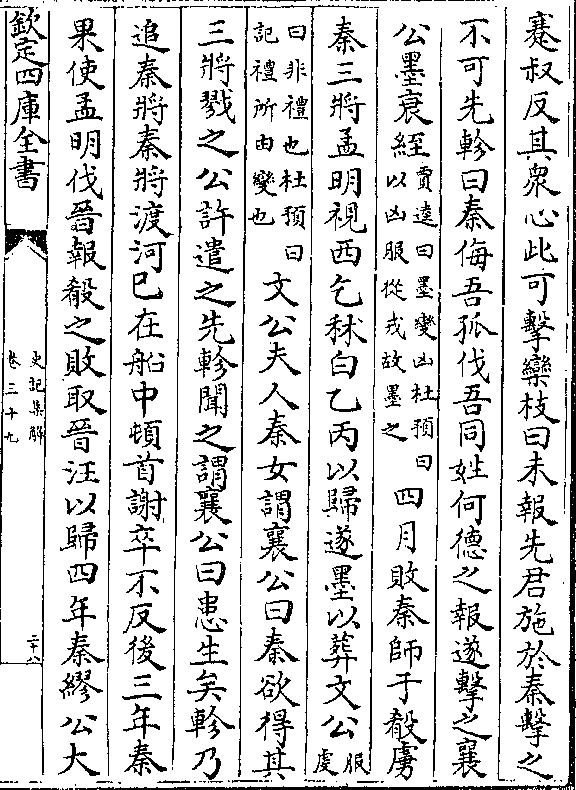 蹇叔反其衆心此可擊欒枝曰未報先君施於秦擊之
不可先軫曰秦侮吾孤伐吾同姓何德之報遂擊之襄
公墨衰絰賈逵曰墨變凶杜預曰以凶服從戎故墨之四月敗秦師于殽虜
秦三將孟明視西乞秫白乙丙以歸遂墨以葬文公服虔
曰非禮也杜預曰記禮所由變也文公夫人秦女謂襄公曰秦欲得其
三將戮之公許遣之先軫聞之謂襄公曰患生矣軫乃
追秦將秦將渡河已在船中頓首謝卒不反後三年秦
果使孟明伐晉報殽之敗取晉汪以歸四年秦繆公大
欽定四庫全書
史記集解
卷三十九
二十八